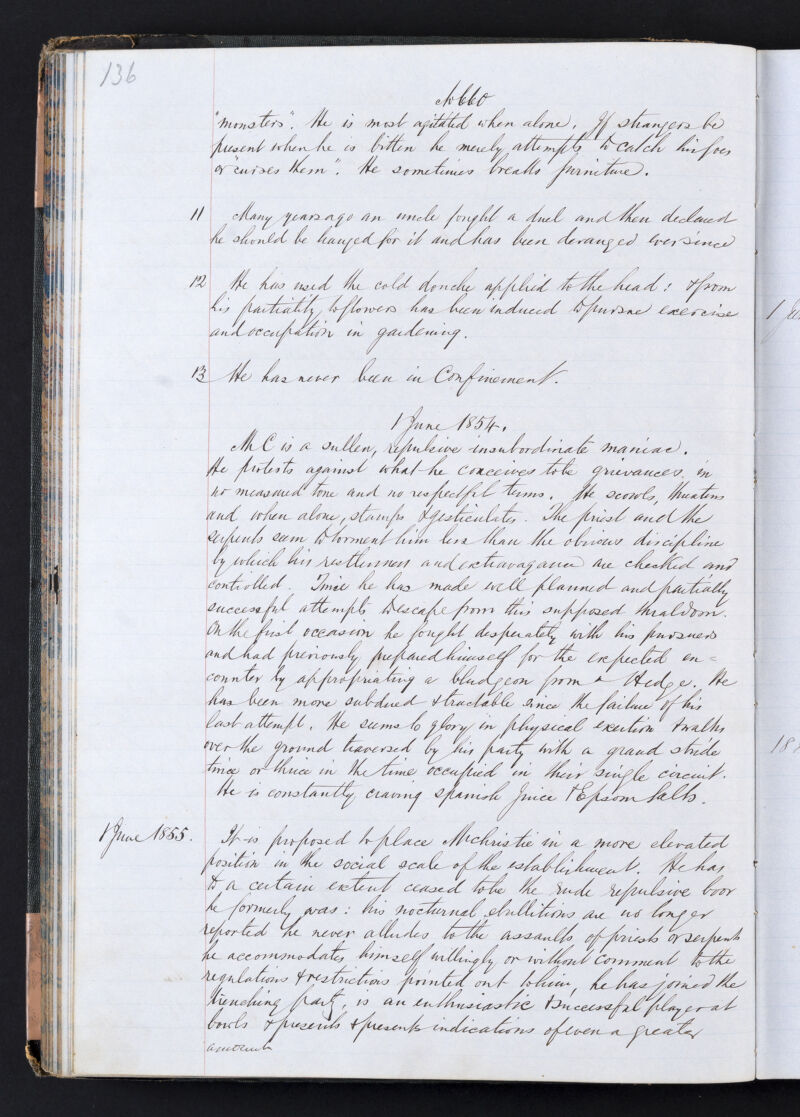 136
No 660
"monsters". He is most agitated when alone. If strangers be
present when he is bitten he merely attempts to catch his foes
or "curses them". He sometimes breaks furniture.
11 Many years ago an uncle fought a duel and then declared
he should be hanged for it and has been deranged ever since
12 He has used the cold douche applied to the head: & from
his partiality to flowers has been induced to pursue exercise
and occupation in gardening.
13 He has never been in Confinement.
1 June 1854.
Mr C is a sullen, repulsive insubordinate maniac.
He protests against what he conceives to be grievances in
no measured tone and no respectful terms. He scowls, threatens
and when alone, stamps & gesticulates. The priest and the
serpents seem to torment him less than the obvious discipline
by which his restlessness and extravagance are checked and
controlled. Twice he has made well planned and partially
successful attempts to escape from this supposed thraldom.
On the first occasion he fought desperately with his pursuers
and had previously prepared himself for the expected en=
counter by appropriating a bludgeon from a Hedge. He
has been more subdued & tractable since the failure of his
last attempt. He seems to glory in physical exertion & walks
over the ground traversed by his party with a grand stride
twice or thrice in the time occupied in their single circuit.
He is constantly craving Spanish Juice & Epsom Salts.
1 June 1855. It is proposed to place Mr Christie in a more elevated
position in the social scale of the establishment. He has
to a certain extent ceased to be the rude repulsive boor
he formerly was: his nocturnal ebullitions are no longer
reported he never alludes to the assaults of priests or serpents
he accommodates himself willingly or without comment to the
regulations & restrictions pointed out to him, he has joined the
trenching party, is an enthusiastic & successful player at
bowls & presents & presents indications of even a greater
amount
1 Ju
18